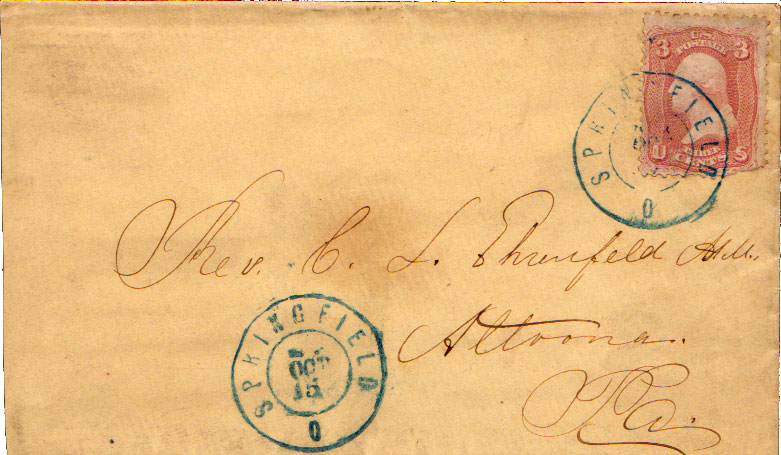 3 U.S. 3
POSTAGE
U THREE S
CENTS
SPRINGFIELD
OCT
O
Rev. C. L. Ehrenfeld A.M.,
Altoona.
Pa.
SPRINGFIELD
OCT
15
O